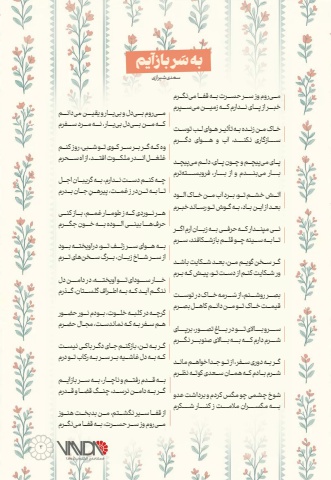 به سَر باز آیم
سعدی شیرازی
می‌روم وز سر حسرت به قفا می‌نگرم
خبر از پای ندارم که زمین می‌سپرم
می‌روم بی‌دل و بی‌یار و یقین می‌دانم
که من بی‌دل بی‌یار، نه مرد سفرم
خاک من زنده به تأثیر هوای لب توست
سازگاری نکند، آب و هوای دگرم
وه که گر بر سر کوی تو شبی، روز کنم
غلغل اندر ملکوت افتد، از آه سحرم
پای می‌پیچم و چون پای، دلم می‌پیچد
بار می‌بندم و از بار، فروبسته‌ترم
چه کنم دست ندارم، به گریبان اجل
تا به تن در ز غمت، پیرهن جان بدرم
آتش خشم تو برد آب من خاک آلود
بعد از این باد، به گوش تو رساند خبرم
هر نوردی که ز طومار غمم، باز کنی
حرف‌ها بینی آلوده به خون جگرم
نی مپندار که حرفی به زبان آرم اگر
تا به سینه چو قلم بازشکافند، سرم
به هوای سر زلف تو درآویخته بود
از سر شاخ زبان، برگ سخن‌های ترم
گر سخن گویم من، بعد شکایت باشد
ور شکایت کنم از دست تو، پیش که برم
خار سودای تو آویخته، در دامن دل
ننگم آید که به اطراف گلستان گذرم
بصر روشنم، از سرمه خاک در توست
قیمت خاک تو من دانم کاهل بصرم
گرچه در کلبه خلوت، بودم نور حضور
هم سفر به که نمانده‌ست، مجال حضرم
سرو بالای تو در باغ تصور، برپای
شرم دارم که به بالای صنوبر نگرم
گر به تن، بازکنم جای دگر باکی نیست
که به دل غاشیه بر سر به رکاب تو درم
گر به دوری سفر، از تو جدا خواهم ماند
شرم بادم که همان سعدی کوته نظرم
به قدم رفتم و ناچار، به سر بازآیم
گر به دامن نرسد، چنگ قضا و قدرم
شوخ چشمی چو مگس کردم و برداشت عدو
به مگسران ملامت ز کنار شکرم
از قفا سیر نگشتم، من بدبخت هنوز
می‌روم وز سر حسرت، به قفا می‌نگرم